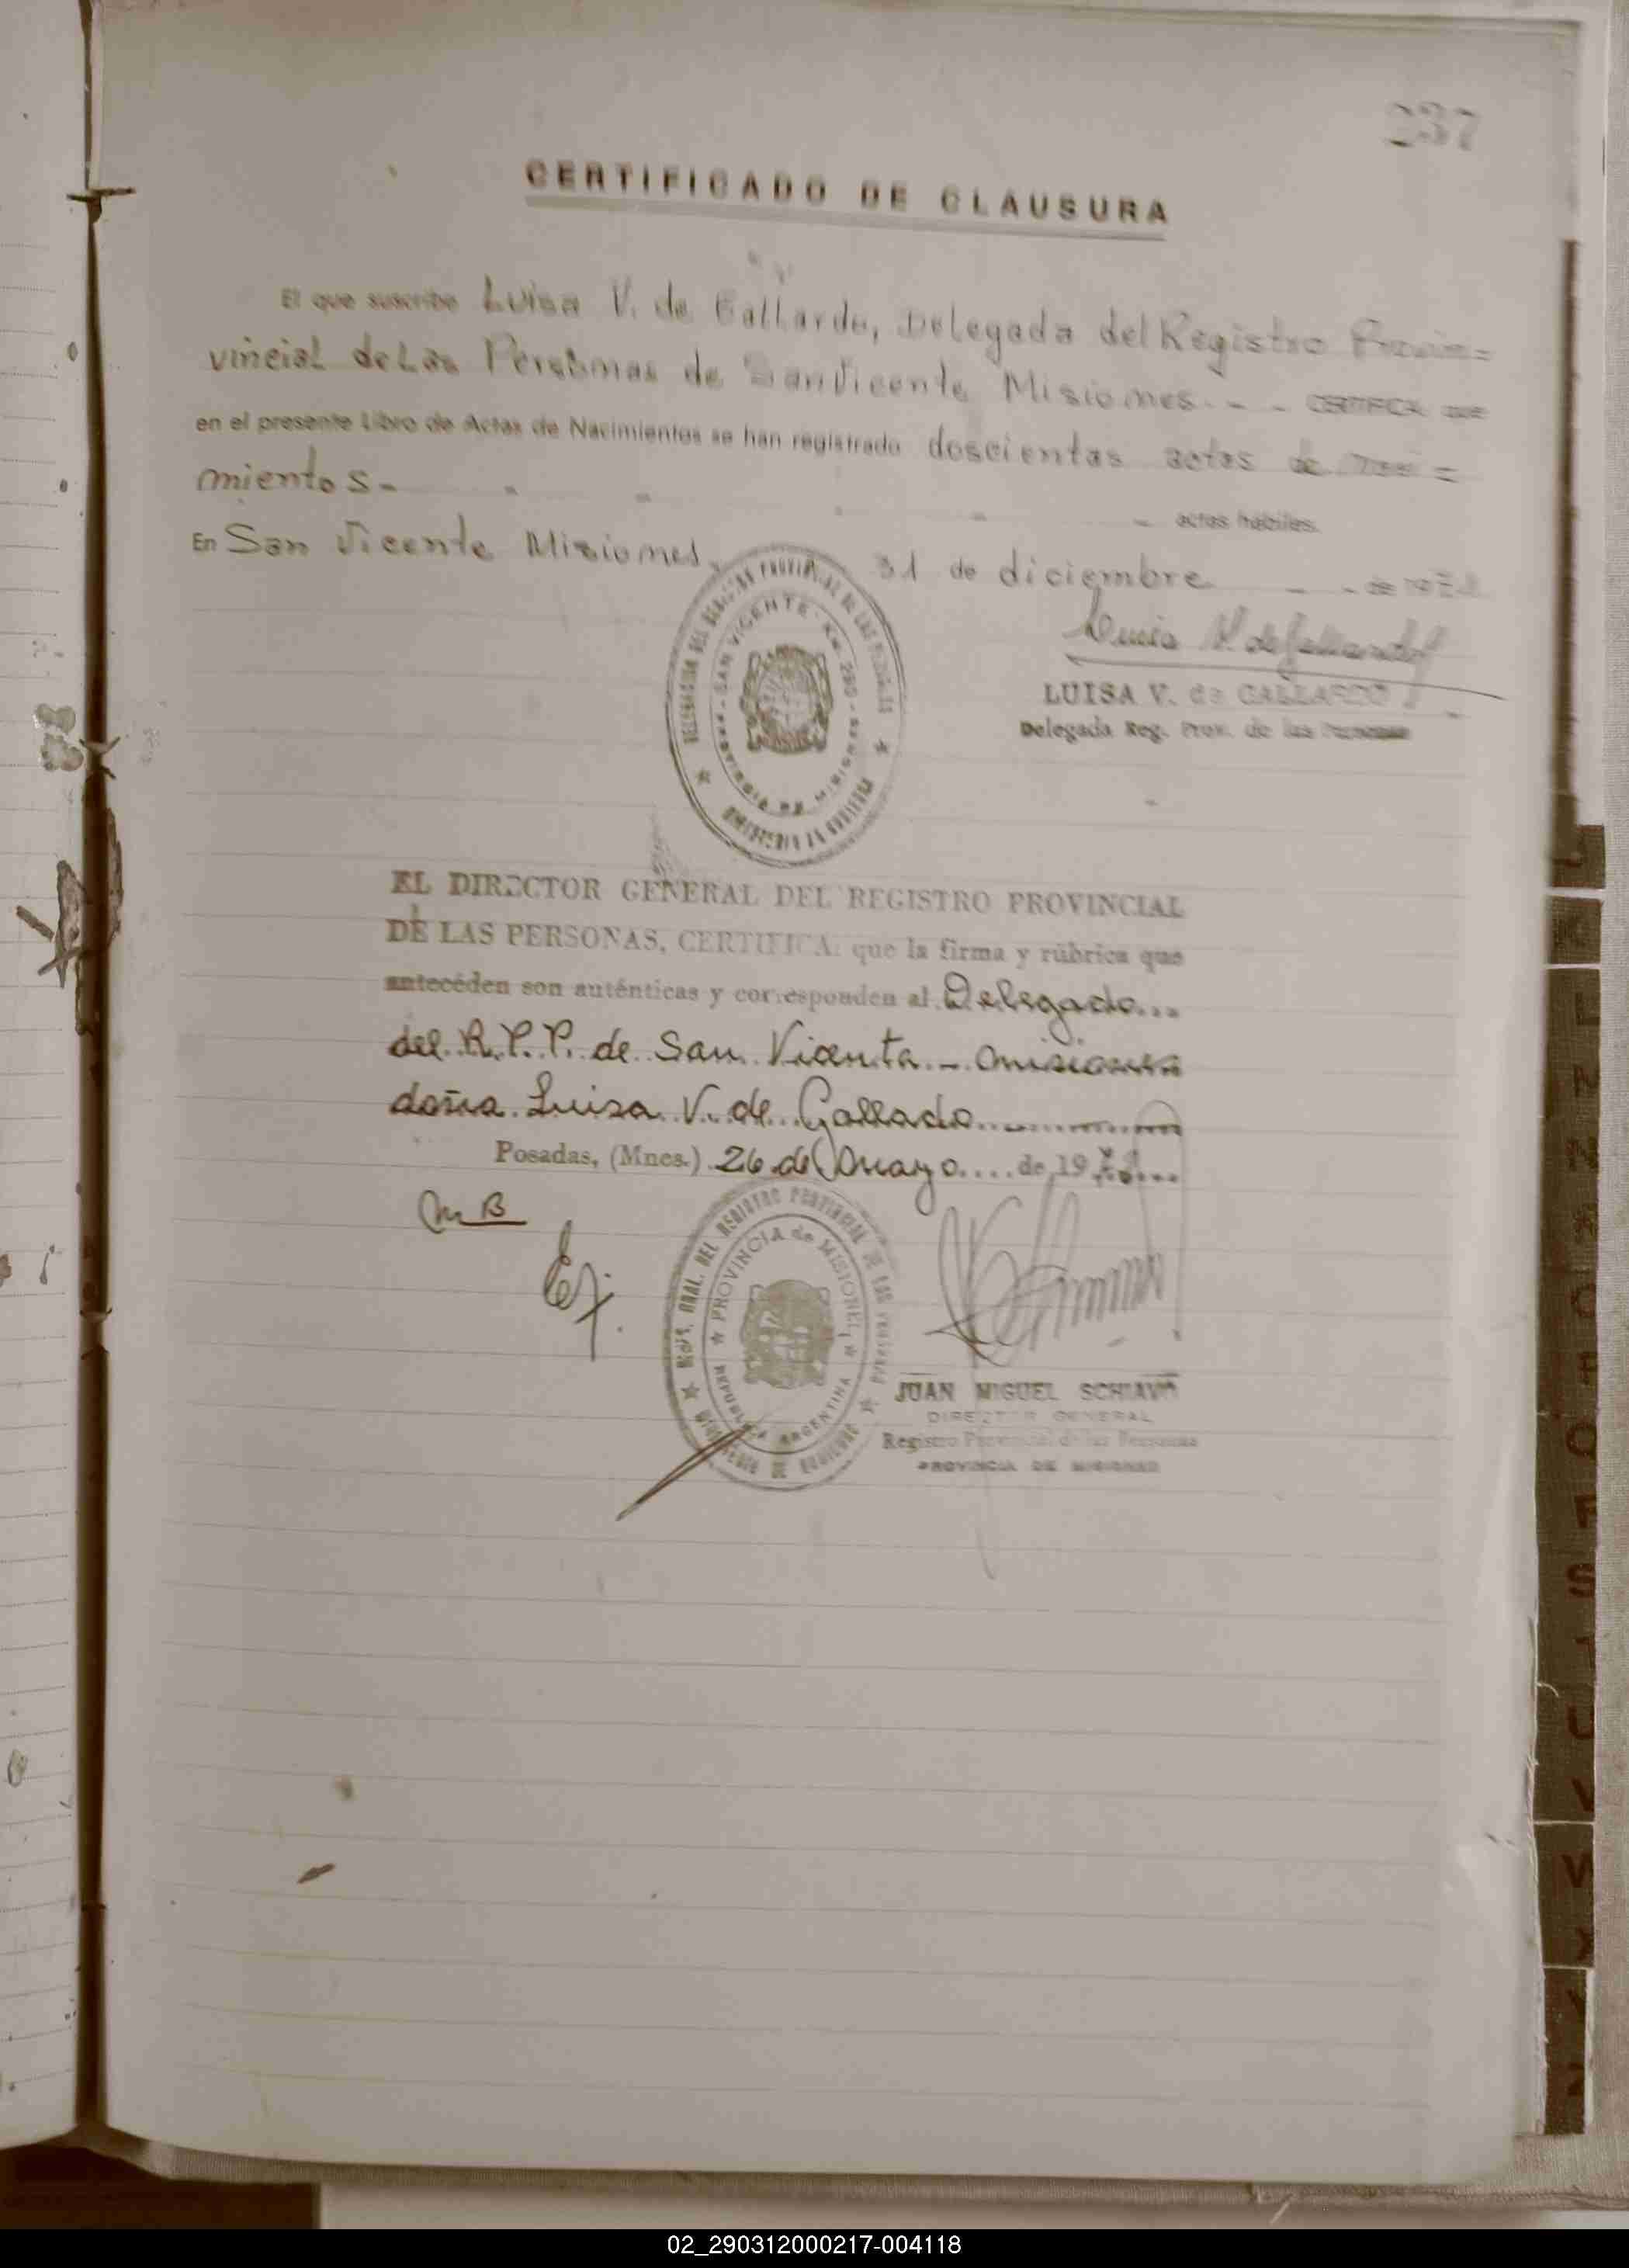 237
CERTIFICADO DE CLAUSURA
El que suscribe Luisa V. de Gallardo, Delegada del Registro Provin=
vincial de Las Personas de San Vicente Misiones. - - CERTIFICA que
en el presente Libro de Actas de Nacimientos se han registrado doscientas actas de
mientos -
- actas hábiles.
En San Vicente Misiones, 31 de diciembre - - de
Luisa V. de Gallardo
LUISA V. de GALLARDO
Delegada Reg. Prov. de las Personas
DELEGACION DEL REGISTRO PROVINCIAL DE LAS PERSONAS
SAN VICENTE - Km. 290 -
PROVINCIA DE MISIONES
EL DIRECTOR GENERAL DEL REGISTRO PROVINCIAL
DE LAS PERSONAS, CERTIFICA: que la firma y rúbrica que
antecéden son auténticas y corresponden al Delegado...
del R.P.P. de San Vicente - Misiones
doña Luisa V. de Gallado
Posadas, (Mnes.) 26 de Mayo .... de 19
MB
Ej.
DIR. GRAL. DEL REGISTRO PROVINCIAL DE LAS PERSONAS
PROVINCIA de MISIONES
REPUBLICA ARGENTINA
MINISTERIO DE GOBIERNO
JUAN MIGUEL SCHIAVO
DIRECTOR GENERAL
Registro Provincial de las Personas
PROVINCIA DE MISIONES
J
K
L
M
N
Ñ
O
P
Q
R
S
T
U
V
W
X
Y
Z
02_290312000217-004118